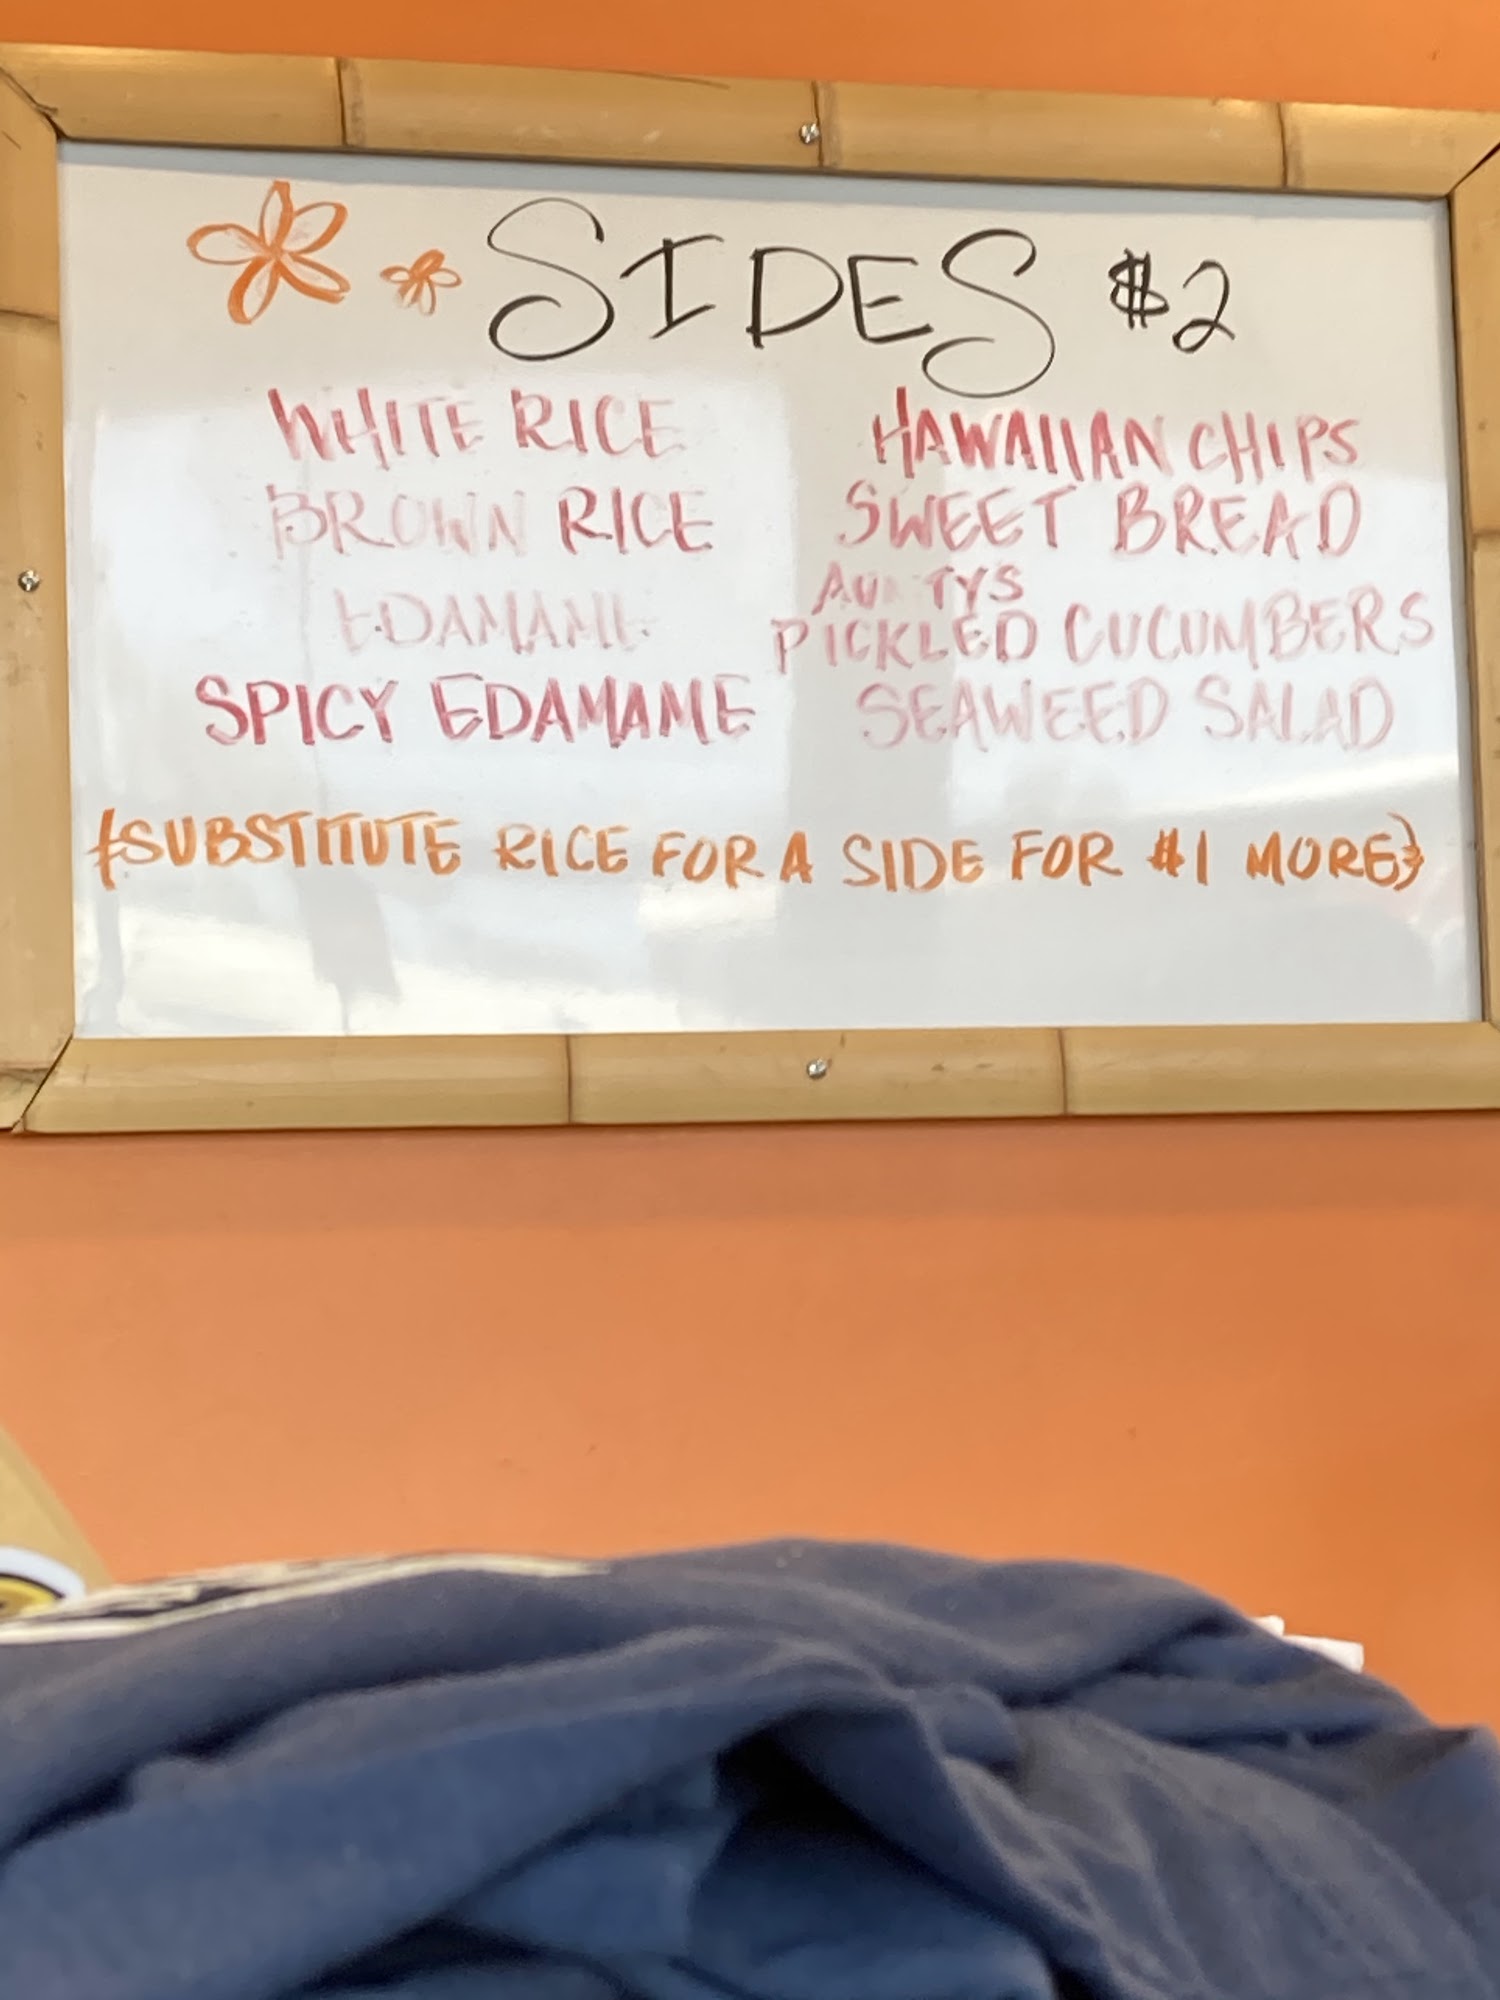 SIDES $2
WHITE RICE
BROWN RICE
EDAMAME
SPICY EDAMAME
HAWAIIAN CHIPS
SWEET BREAD
AUNTYS
PICKLED CUCUMBERS
SEAWEED SALAD
{SUBSTITUTE RICE FOR A SIDE FOR $1 MORE}